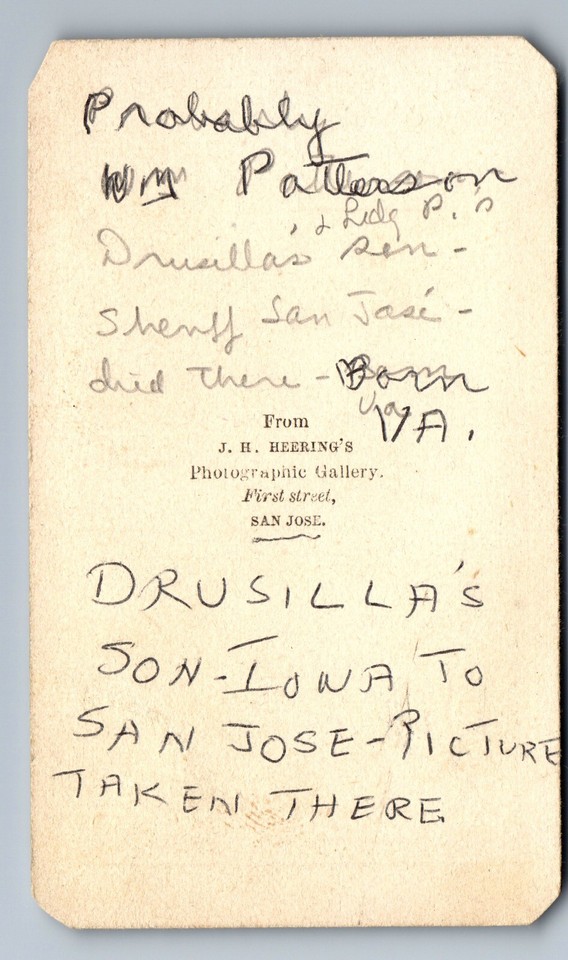 Probably
Wm Patterson
& Lidg P.'s
Drusilla's son -
Sheriff San José -
died there - Born
Va
VA.
From
J. H. HEERING'S
Photographic Gallery.
First street,
SAN JOSE.
DRUSILLA'S
SON - IOWA TO
SAN JOSE - PICTURE
TAKEN THERE